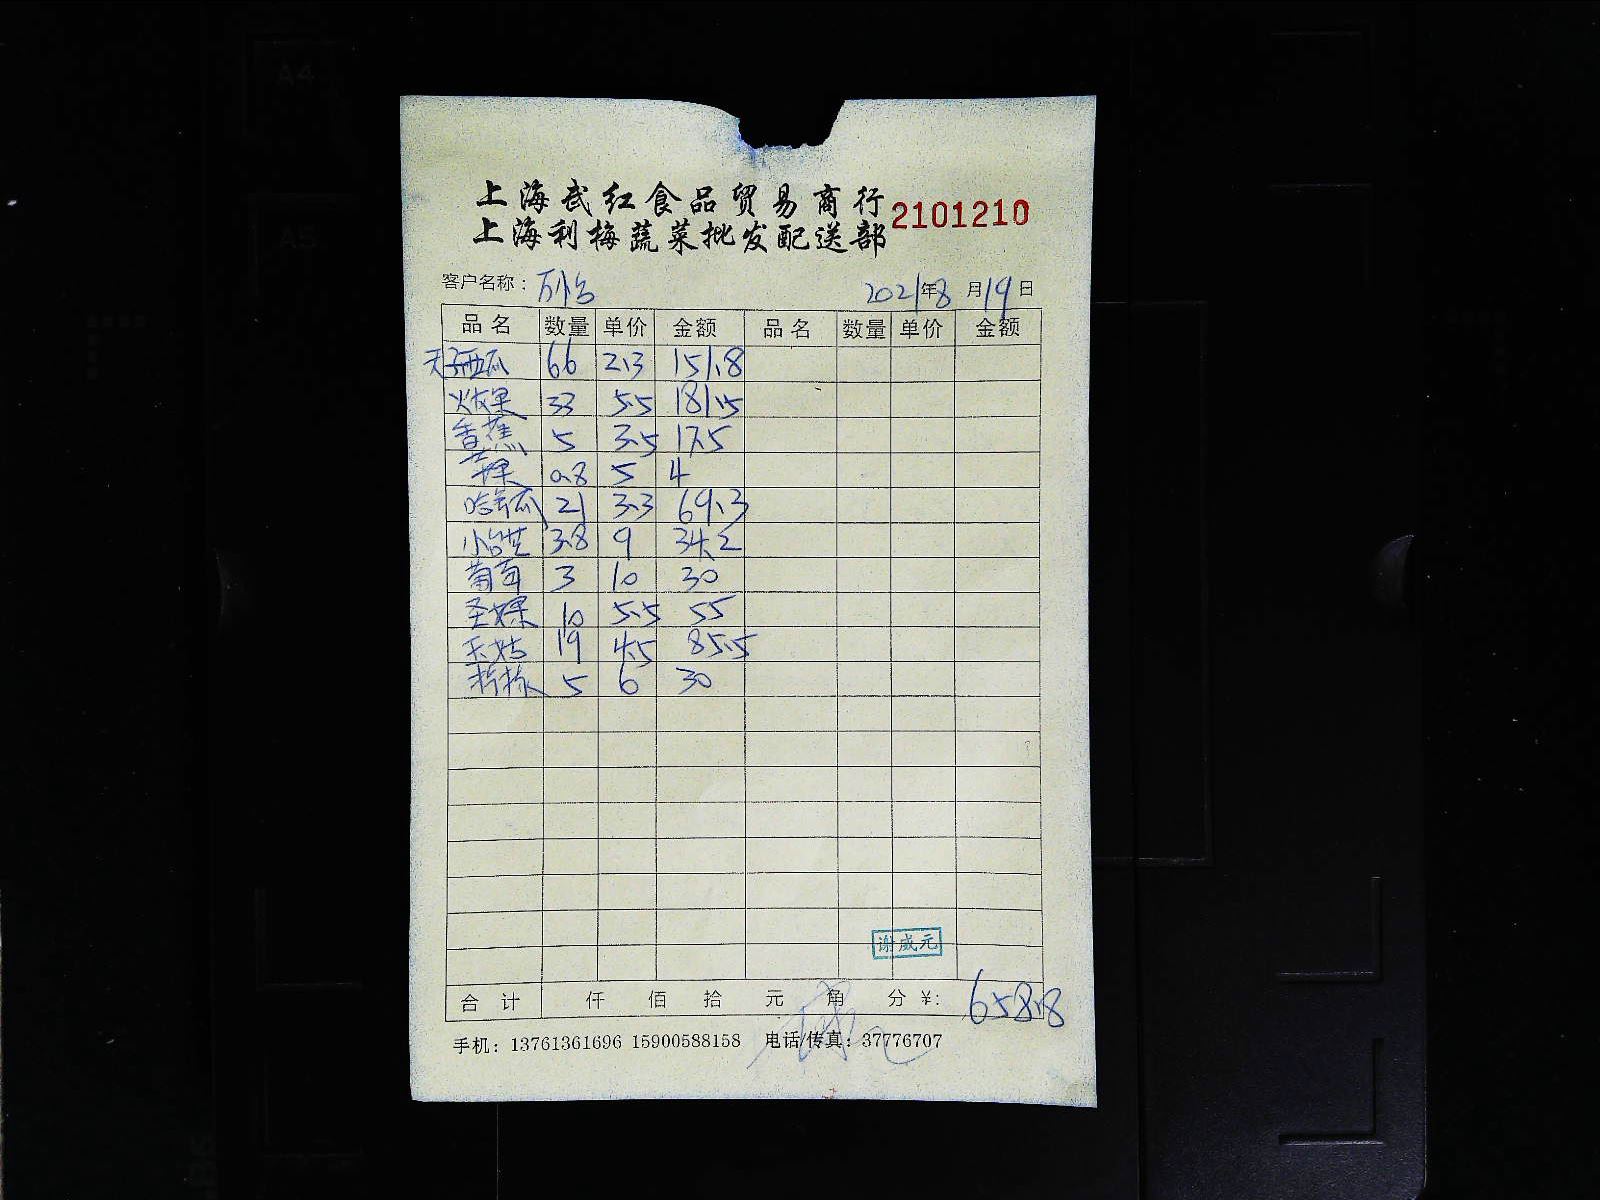 上海武红食品贸易商行
上海利梅蔬菜批发配送部
2101210
客户名称: 2021年8月19日
品名 数量 单价 金额 品名 数量 单价 金额
西瓜 66 2.3 151.8
火龙果 33 5.5 181.5
香蕉 5 3.5 17.5
苹果 0.8 5 4
哈密瓜 21 3.3 69.3
小台芒 3.8 9 34.2
葡萄 3 10 30
圣女果 10 5.5 55
玉姑 19 4.5 85.5
柠檬 5 6 30
谢威元
合计 仟 佰 拾 元 角 分 ¥: 658.8
手机: 13761361696 15900588158 电话/传真: 37776707
A4
A5